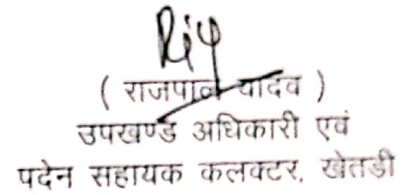 ( राजपाल यादव )
उपखण्ड अधिकारी एवं
पदेन सहायक कलक्टर, खेतडी